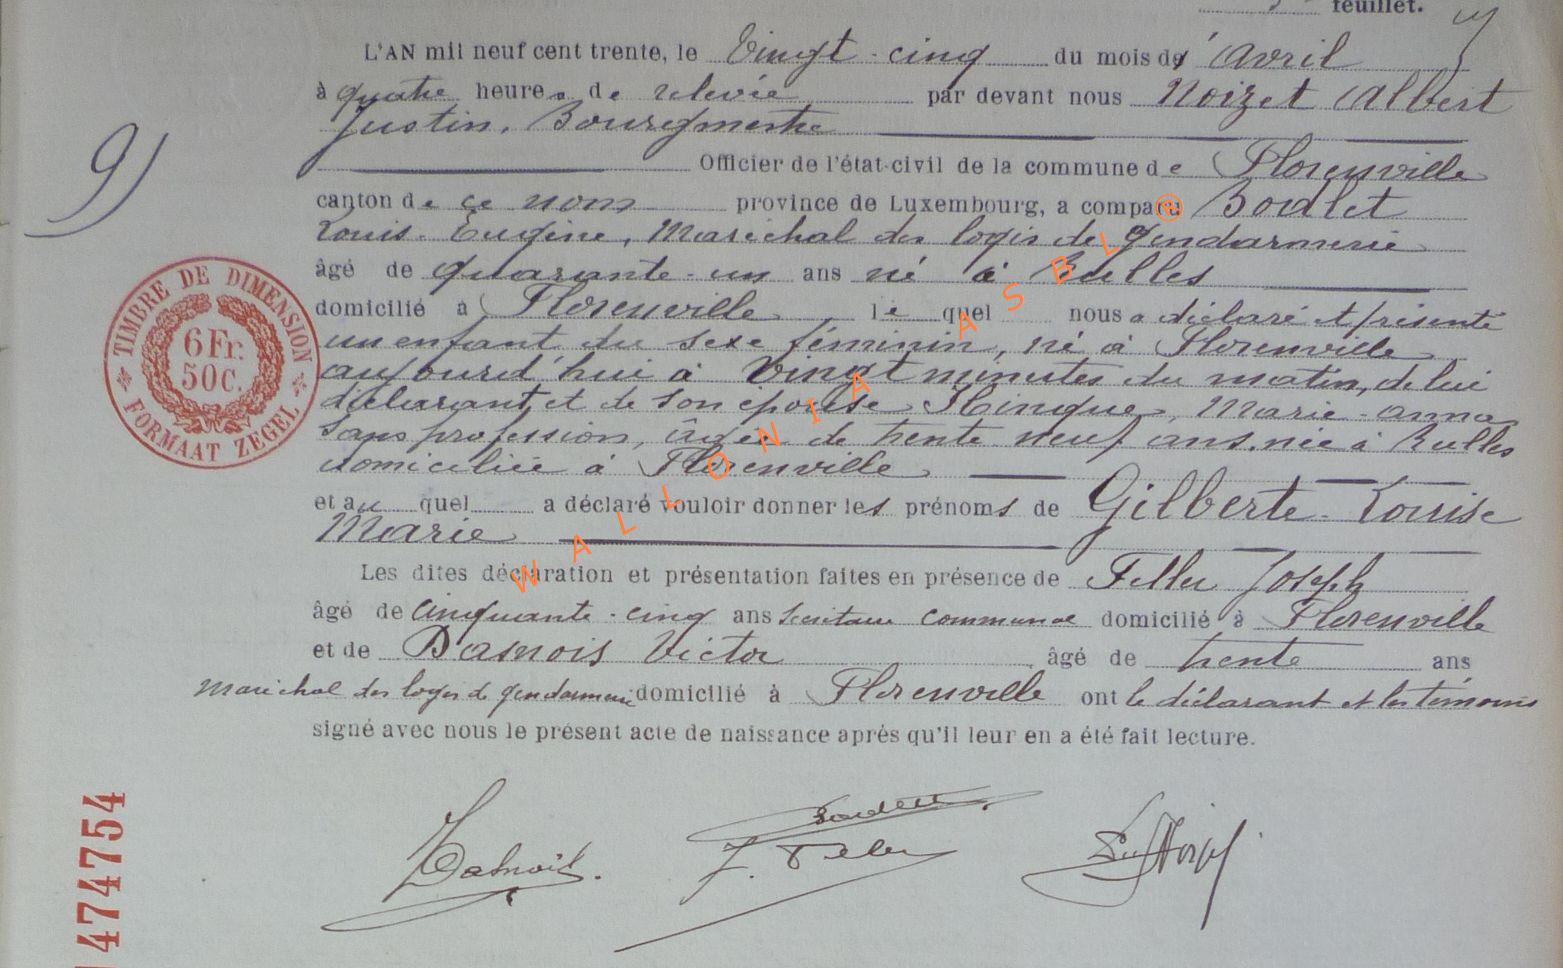 feuillet.
L'AN mil neuf cent trente, le Vingt-cinq du mois d' Avril
à quatre heures de relevée par devant nous Noizet Albert
Justin, Bourgmestre
Officier de l'état-civil de la commune de Florenville
canton de ce nom province de Luxembourg, a comparu Bodlet
Louis-Eugène, Maréchal des logis de gendarmerie
âgé de quarante-un ans né à Rulles
domicilié à Florenville, le quel nous a déclaré et présenté
un enfant du sexe féminin, né à Florenville
aujourd'hui à Vingt minutes du matin, de lui
déclarant et de son épouse Hinque, Marie-Anna
sans profession, âgée de trente neuf ans, née à Rulles
domiciliée à Florenville
et au quel a déclaré vouloir donner les prénoms de Gilberte-Louise
Marie
Les dites déclaration et présentation faites en présence de Feller Joseph
âgé de cinquante-cinq ans secrétaire communal domicilié à Florenville
et de Damois Victor âgé de trente ans
maréchal des logis de gendarmerie domicilié à Florenville ont le déclarant et les témoins
signé avec nous le présent acte de naissance après qu'il leur en a été fait lecture.
9)
TIMBRE DE DIMENSION
6 Fr.
50 C.
FORMAAT ZEGEL
474754
WALLONIA ASBL ®
J. Feller